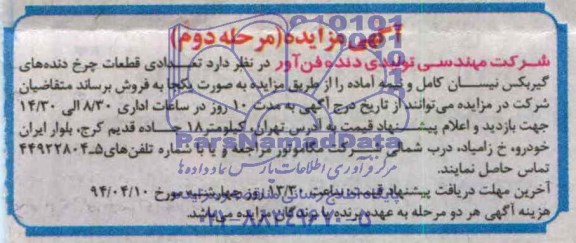 آگهی مزایده(مرحله دوم)
شرکت مهندسی تولیدی دنده فن‌آور در نظر دارد تعدادی قطعات چرخ دنده‌های
گیربکس نیسان کامل و نیمه آماده را از طریق مزایده به صورت یکجا به فروش برساند متقاضیان
شرکت در مزایده می‌توانند از تاریخ درج آگهی به مدت ۱۰ روز در ساعات اداری ۸/۳۰ الی ۱۴/۳۰
جهت بازدید و اعلام پیشنهاد قیمت به آدرس تهران، کیلومتر۱۸ جاده قدیم کرج، بلوار ایران
خودرو، خ زامیاد، درب شمالی شرکت مگاموتور مراجعه و یا با شماره تلفن‌های۵ـ۴۴۹۲۲۸۰۴
تماس حاصل نمایند.
آخرین مهلت دریافت پیشنهاد قیمت ساعت ۱۲/۳۰ روز چهارشنبه مورخ ۹۴/۰۴/۱۰
هزینه آگهی هر دو مرحله به عهده برنده یا برندگان مزایده می‌باشد.
ParsNamadData
مرکز فرآوری اطلاعات پارس نماد داده‌ها
۰۲۱-۸۸۳۴۹۶۷۰-۵